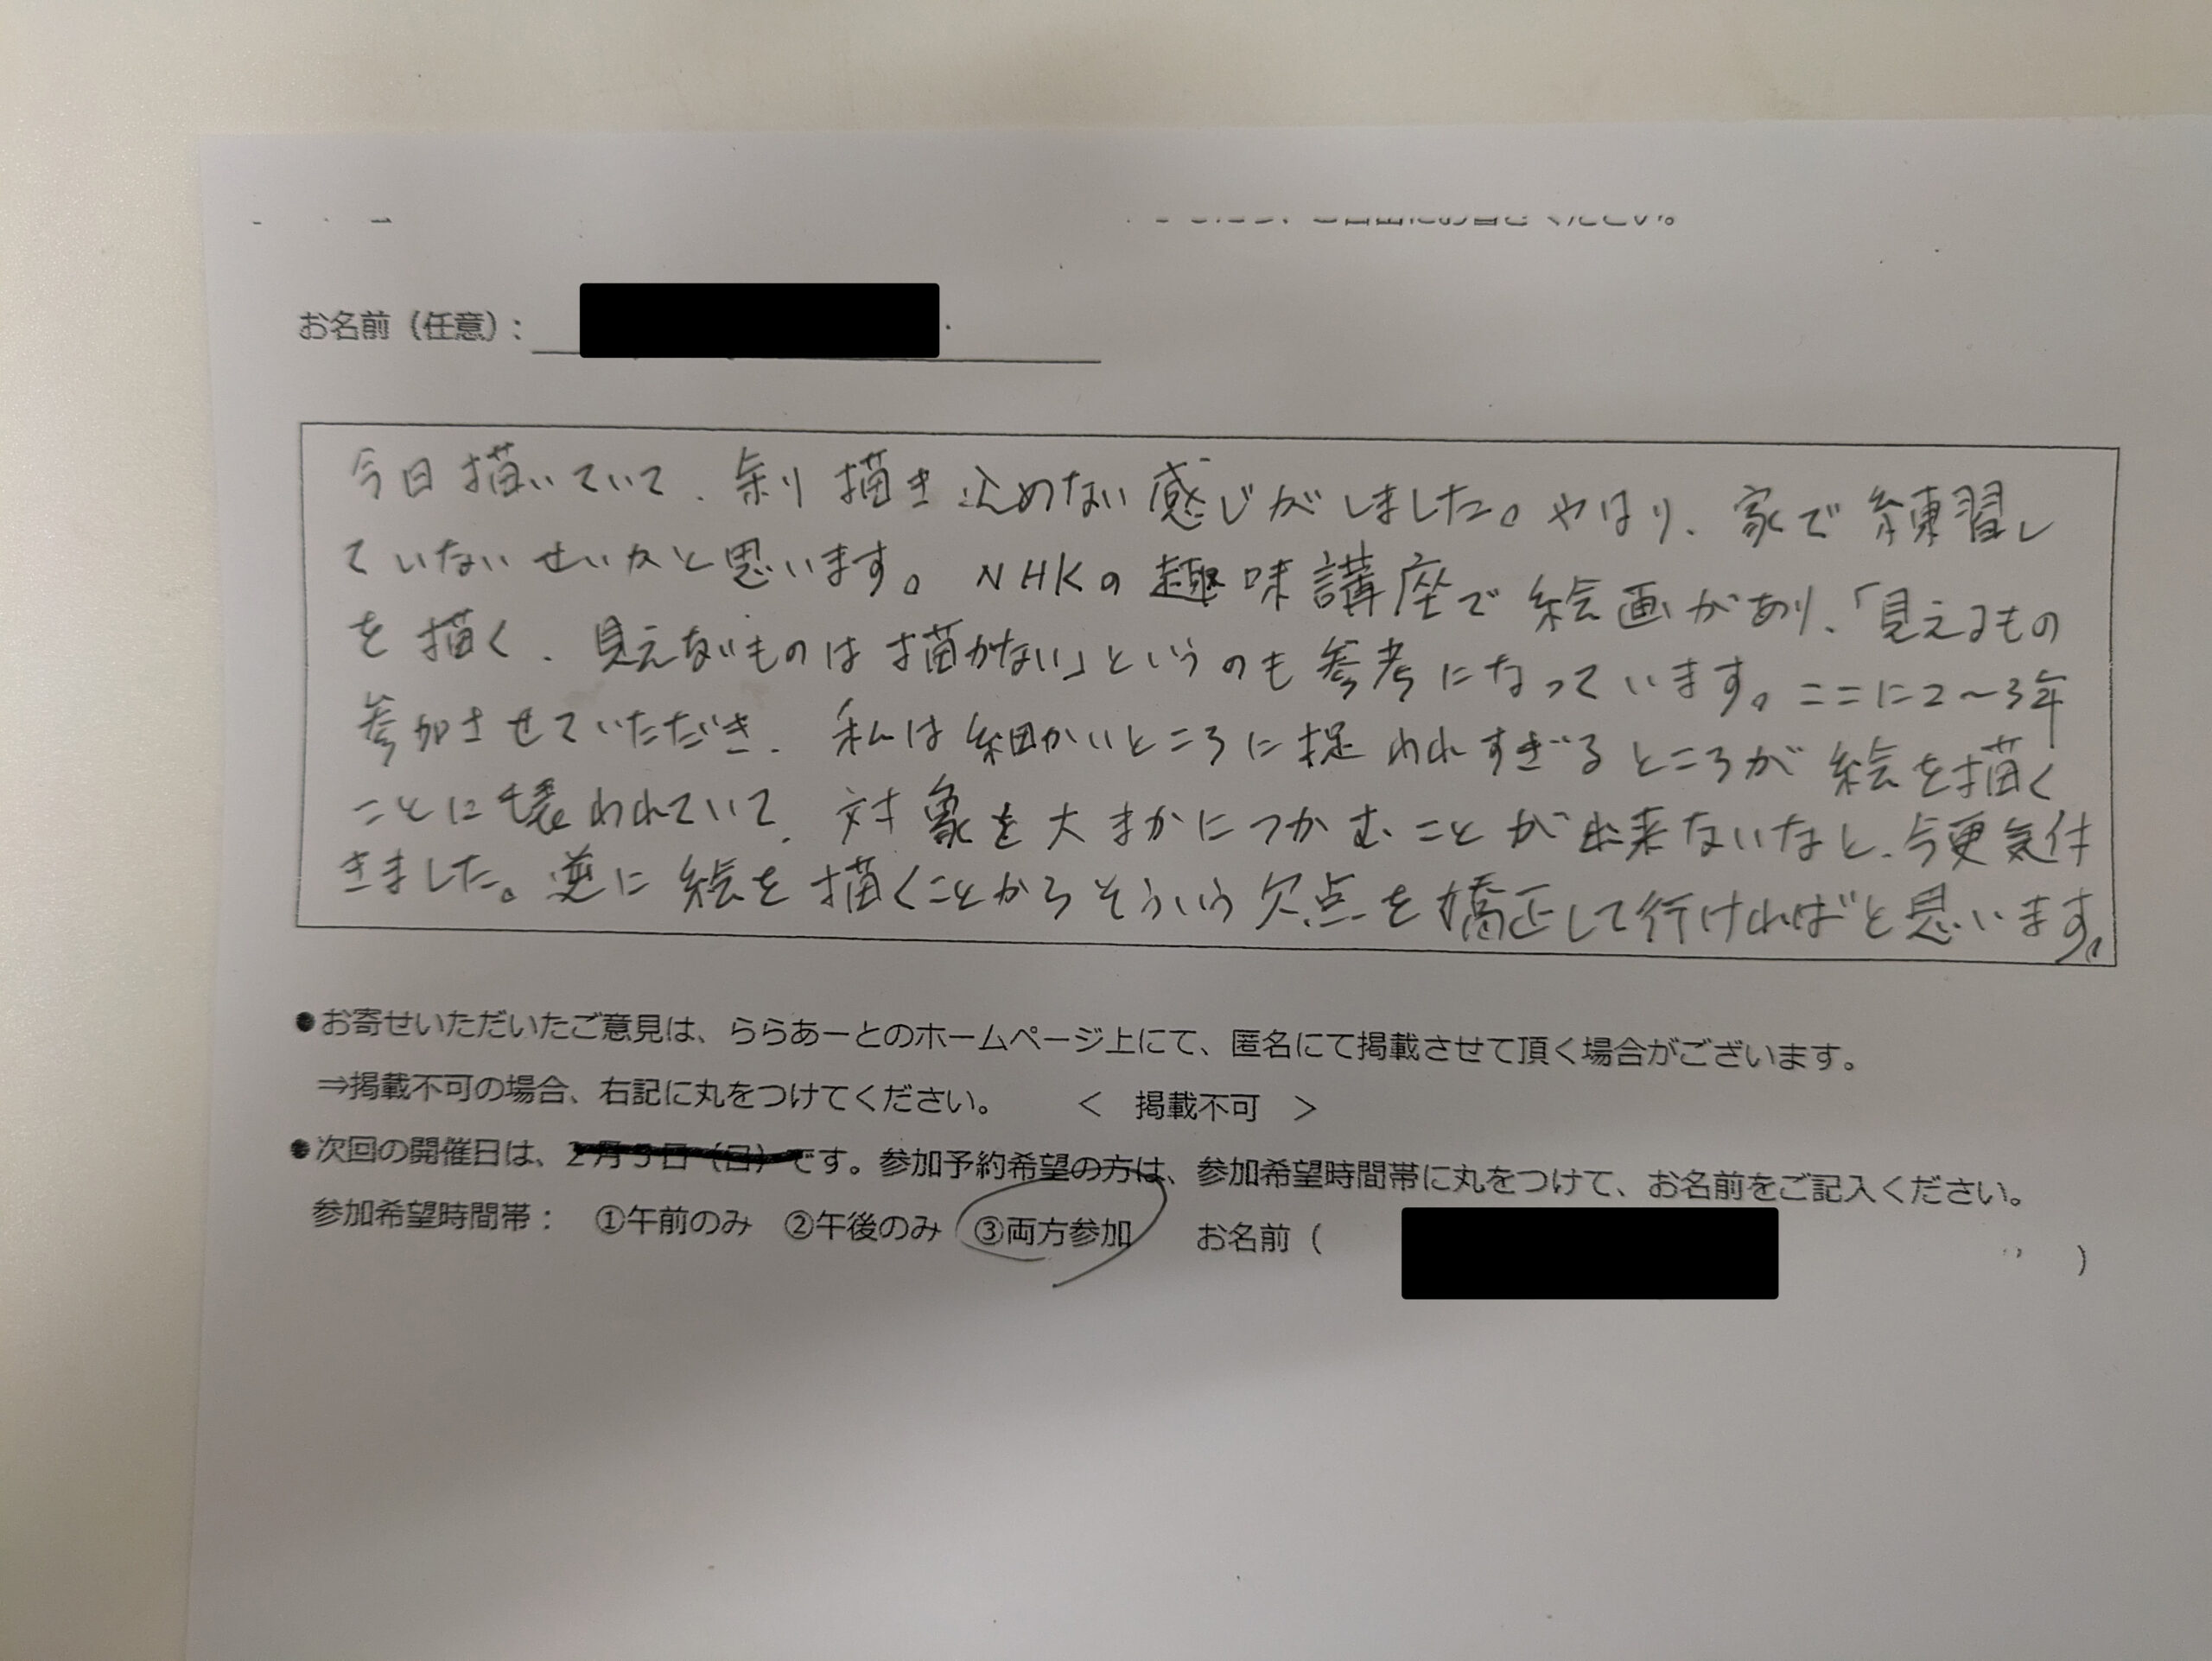 お名前（任意）:
今日描いていて、余り描き込めない感じがしました。やはり、家で練習し
ていないせいかと思います。NHKの趣味講座で絵画があり、「見えるもの
を描く、見えないものは描かない」というのも参考になっています。ここに2〜3年
参加させていただき、私は細かいところに捉われすぎるところが絵を描く
ことに表われていて、対象を大まかにつかむことが出来ないなと、今更気付
きました。逆に絵を描くことからそういう欠点を矯正して行ければと思います。
●お寄せいただいたご意見は、ららあーとのホームページ上にて、匿名にて掲載させて頂く場合がございます。
⇒掲載不可の場合、右記に丸をつけてください。　＜　掲載不可　＞
●次回の開催日は、2月5日（日）です。参加予約希望の方は、参加希望時間帯に丸をつけて、お名前をご記入ください。
参加希望時間帯：　①午前のみ　②午後のみ　③両方参加　お名前（　）